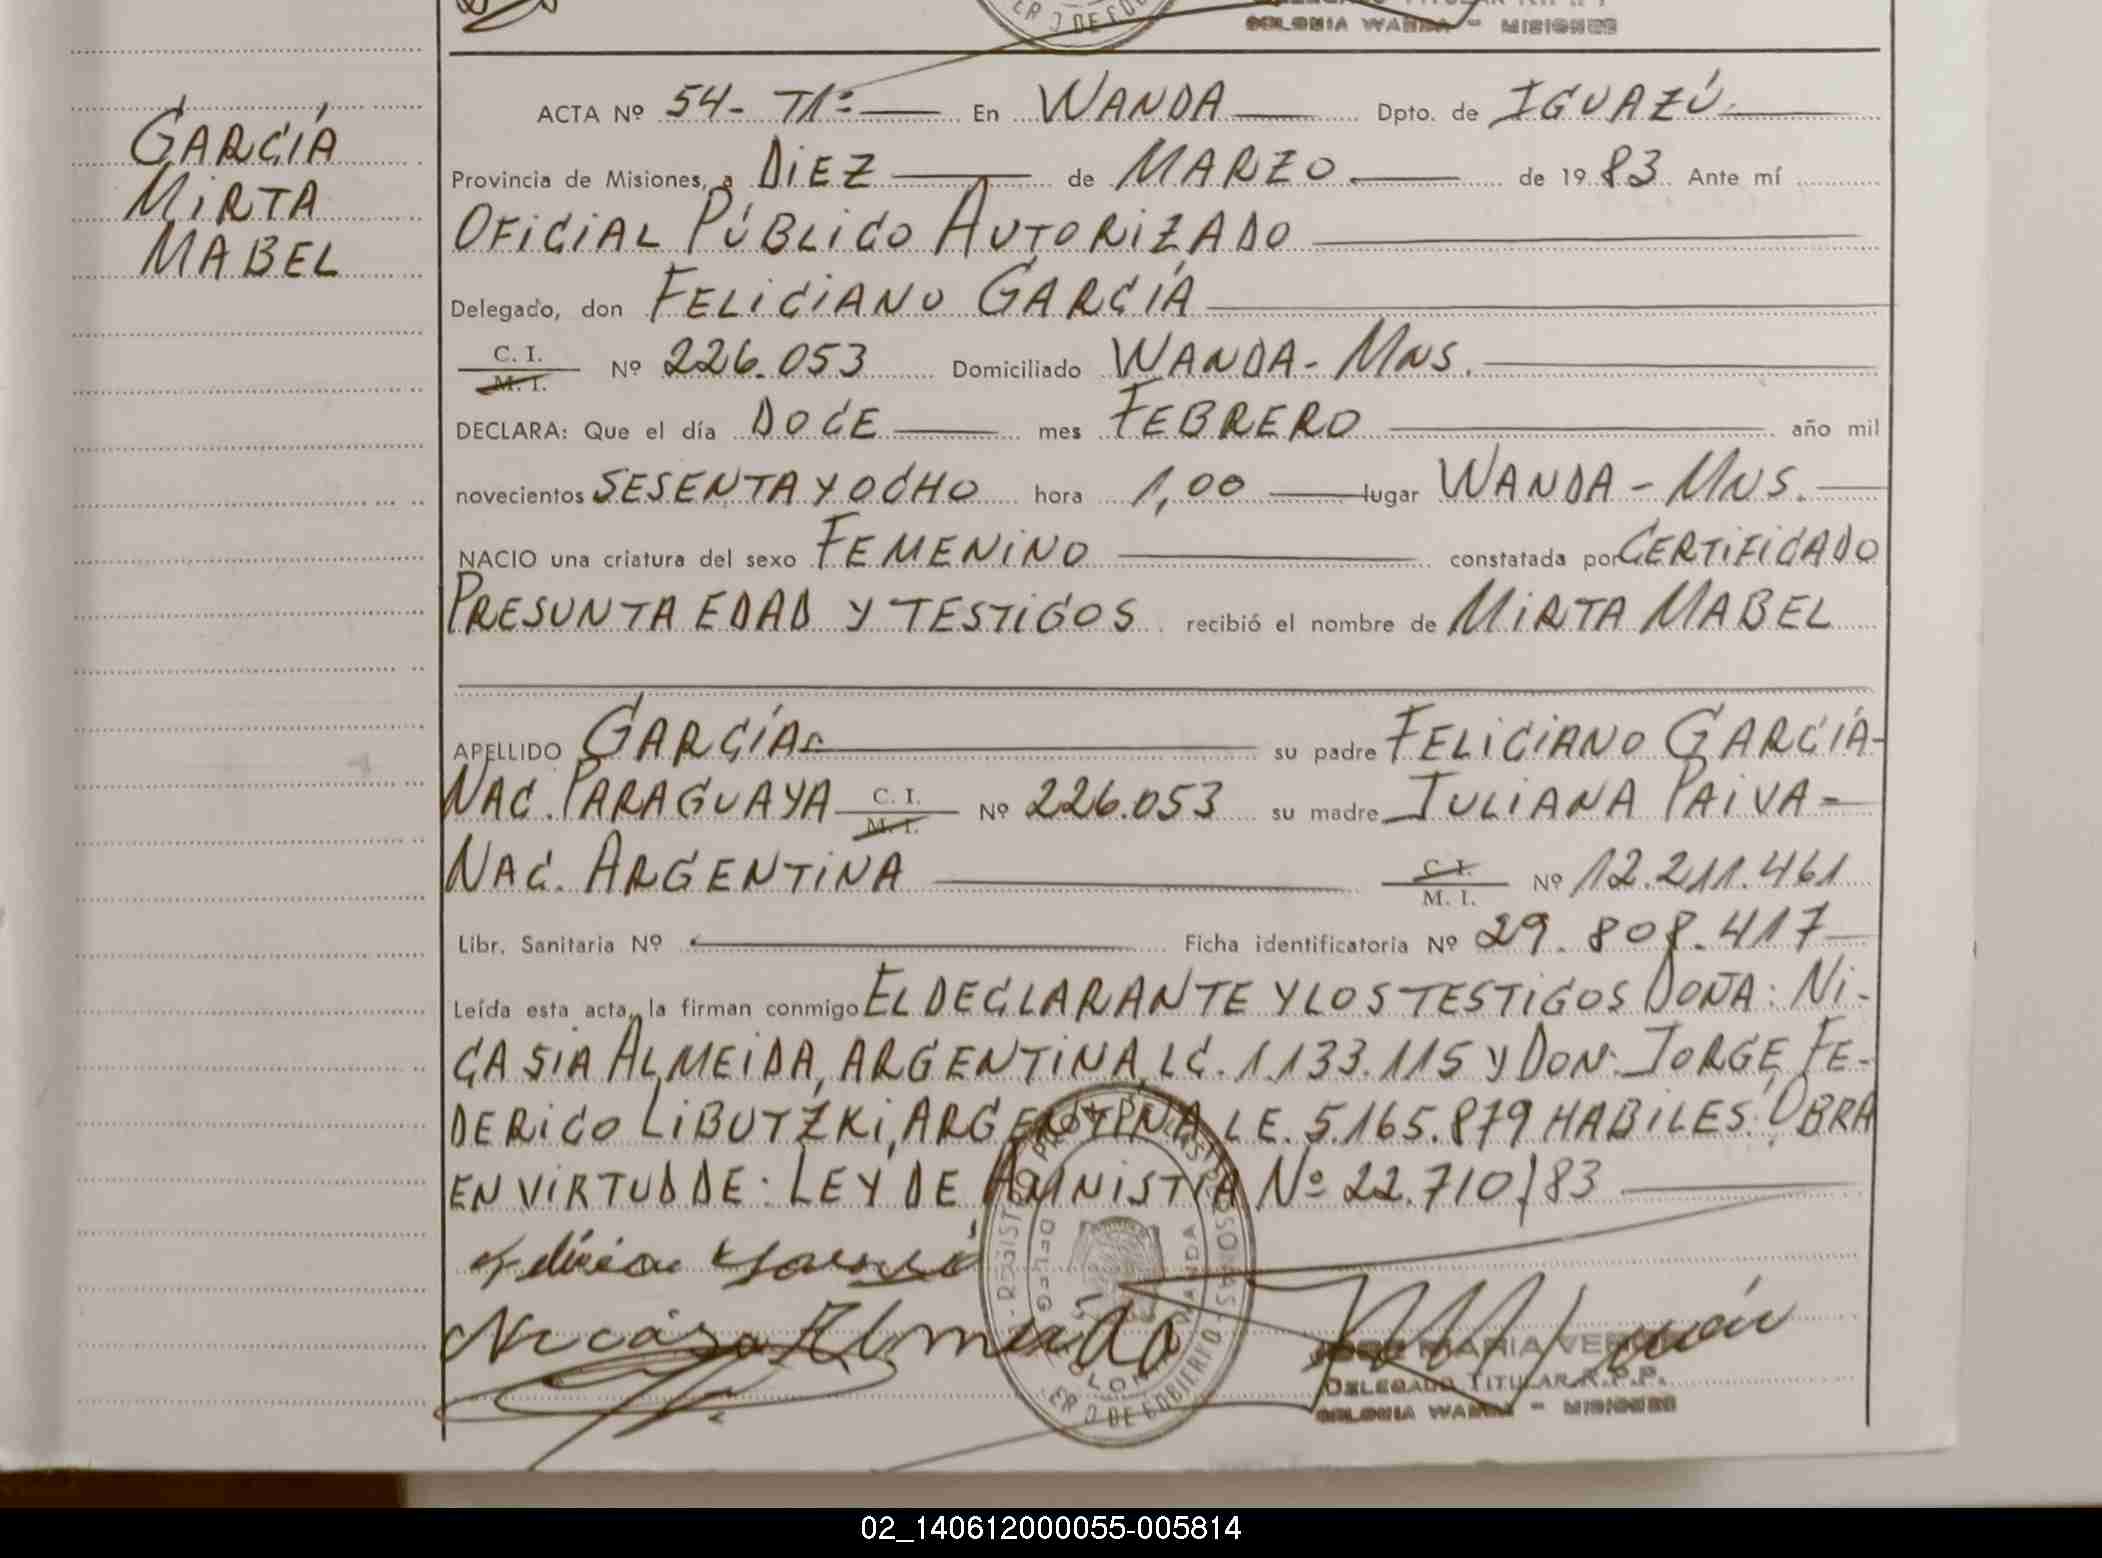 COLONIA WANDA - MISIONES
GARCÍA
MIRTA
MABEL
ACTA Nº 54- Tº1º En WANDA Dpto. de IGUAZÚ
Provincia de Misiones, a DIEZ de MARZO de 1983 Ante mí
OFICIAL PÚBLICO AUTORIZADO
Delegado, don FELICIANO GARCÍA
C. I. / M. I. Nº 226.053 Domiciliado WANDA- MNS.
DECLARA: Que el día DOCE mes FEBRERO año mil
novecientos SESENTA Y OCHO hora 1,00 lugar WANDA - MNS.
NACIO una criatura del sexo FEMENINO constatada por CERTIFICADO
PRESUNTA EDAD Y TESTIGOS recibió el nombre de MIRTA MABEL
APELLIDO GARCÍA su padre FELICIANO GARCÍA-
NAC. PARAGUAYA C. I. / M. I. Nº 226.053 su madre JULIANA PAIVA-
NAC. ARGENTINA C. I. / M. I. Nº 12.211.461
Libr. Sanitaria Nº Ficha identificatoria Nº 29.808.417
Leída esta acta, la firman conmigo EL DECLARANTE Y LOS TESTIGOS DOÑA: NI-
CASIA ALMEIDA, ARGENTINA, LC. 1.133.115 y DON: JORGE FE-
DERICO LIBUTZKI, ARGENTINA LE. 5.165.879 HABILES. OBRA
EN VIRTUD DE: LEY DE AMNISTIA Nº 22.710/83
Nicasia Almeida
JOSE MARIA
DELEGADO TITULAR R.P.P.
COLONIA WANDA - MISIONES
02_140612000055-005814